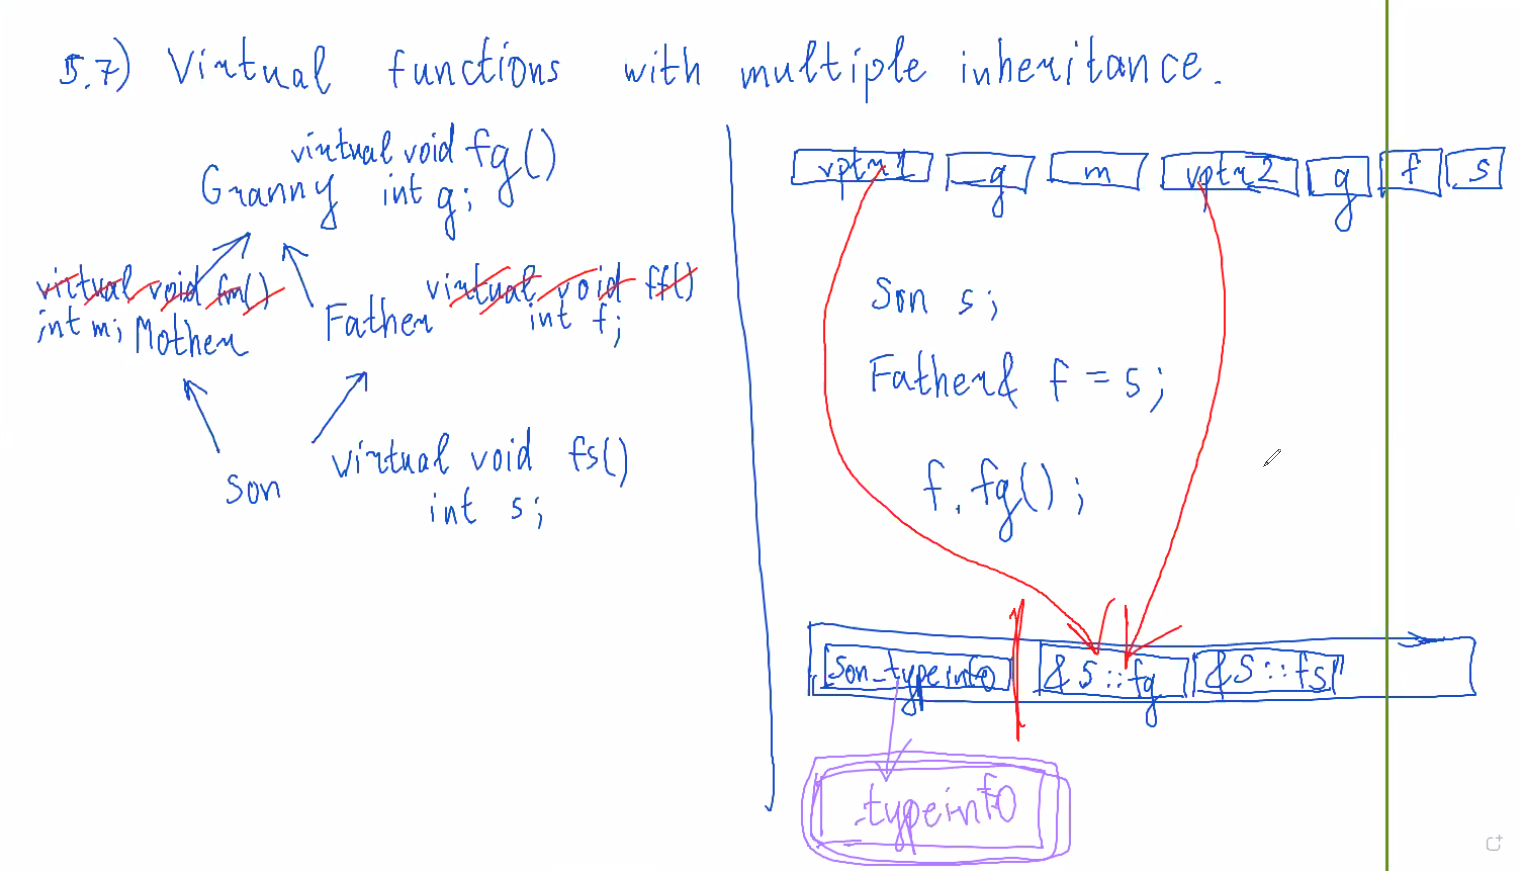 5.7) Virtual functions with multiple inheritance.
virtual void fg()
Granny int g;
virtual void fm()
int m; Mother
Father virtual void ff()
int f;
Son virtual void fs()
int s;
vptr1 g m vptr2 g f s
Son s;
Father& f = s;
f.fg();
Son_typeinfo &S::fg &S::fs
typeinfo